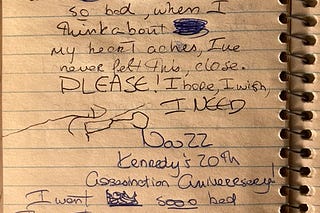 so bad, when I
think about
my heart aches, I've
never felt this, close.
PLEASE! I hope, I wish,
I NEED
Nov 22
Kennedy's 20th
Assasination Anniversery!
I want sooo bad